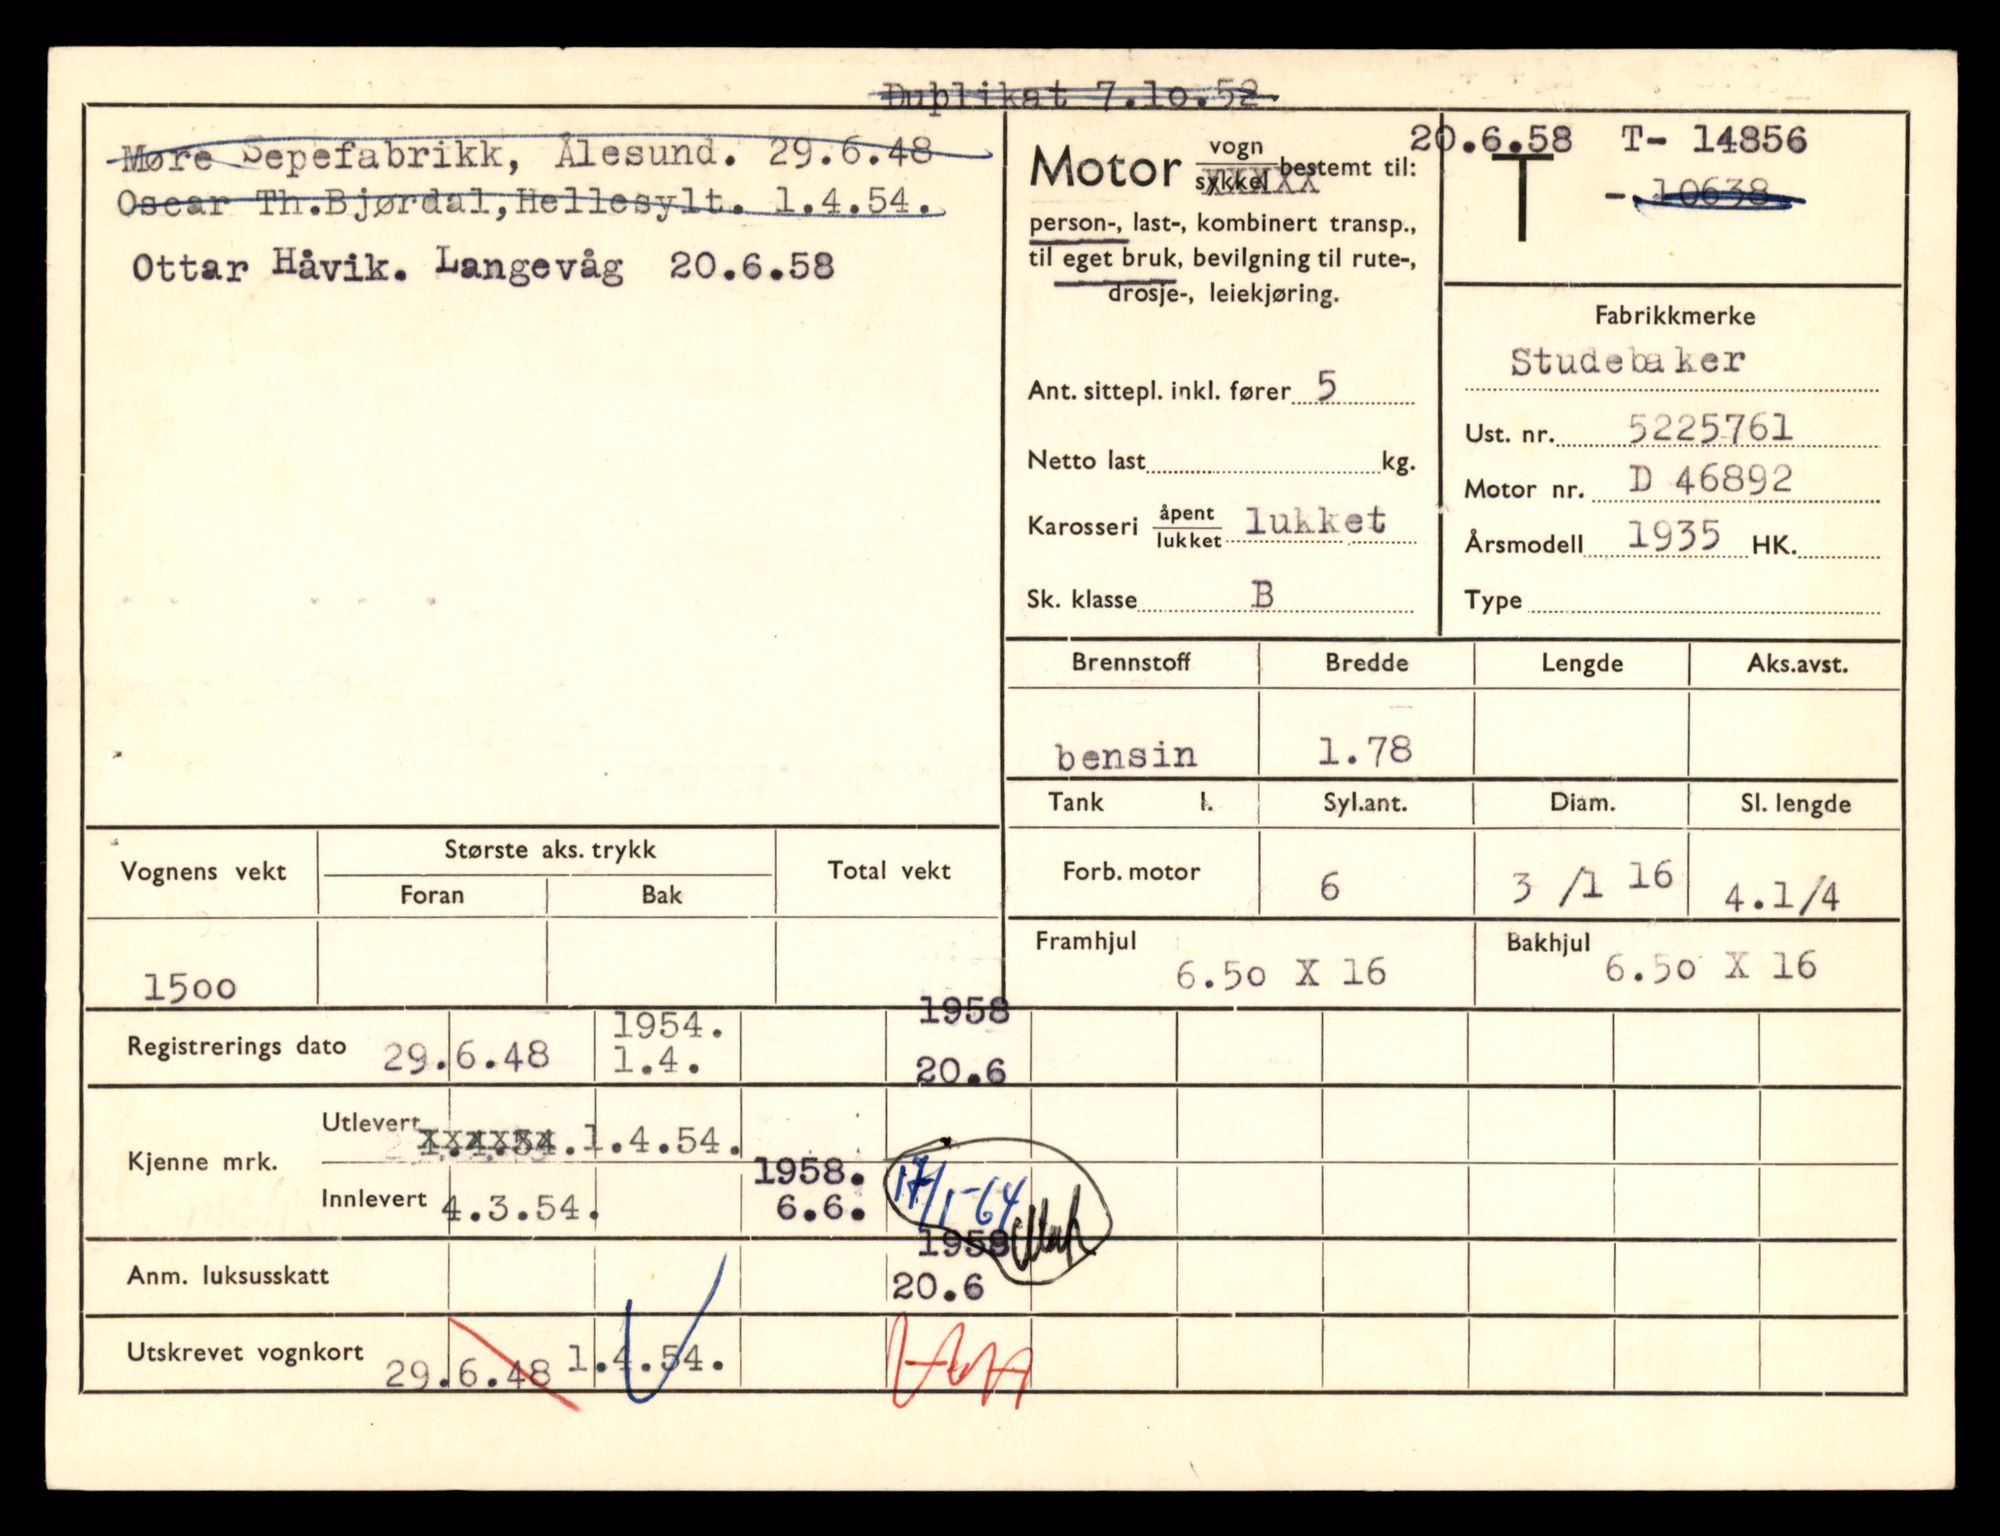 Duplikat 7.10.52
Møre Sepefabrikk, Ålesund. 29.6.48
Oscar Th.Bjørdal,Hellesylt. 1.4.54.
Ottar Håvik. Langevåg 20.6.58
Motor vogn
sykkel bestemt til:
person-, last-, kombinert transp.,
til eget bruk, bevilgning til rute-,
drosje-, leiekjøring.
Ant. sittepl. inkl. fører 5
Netto last kg.
Karosseri åpent
lukket lukket
Sk. klasse B
20.6.58 T- 14856
T - 10638
Fabrikkmerke
Studebaker
Ust. nr. 5225761
Motor nr. D 46892
Årsmodell 1935 HK.
Type
Brennstoff Bredde Lengde Aks.avst.
bensin 1.78
Tank l. Syl.ant. Diam. Sl. lengde
Forb. motor 6 3 /1 16 4.1/4
Framhjul Bakhjul
6.50 X 16 6.50 X 16
Vognens vekt Største aks. trykk Total vekt
Foran Bak
1500
1954. 1958
Registrerings dato 29.6.48 1.4. 20.6
Kjenne mrk. Utlevert 1.4.54.
1958. 17/1-64
Innlevert 4.3.54. 6.6.
1958
Anm. luksusskatt 20.6
Utskrevet vognkort 29.6.48 1.4.54.